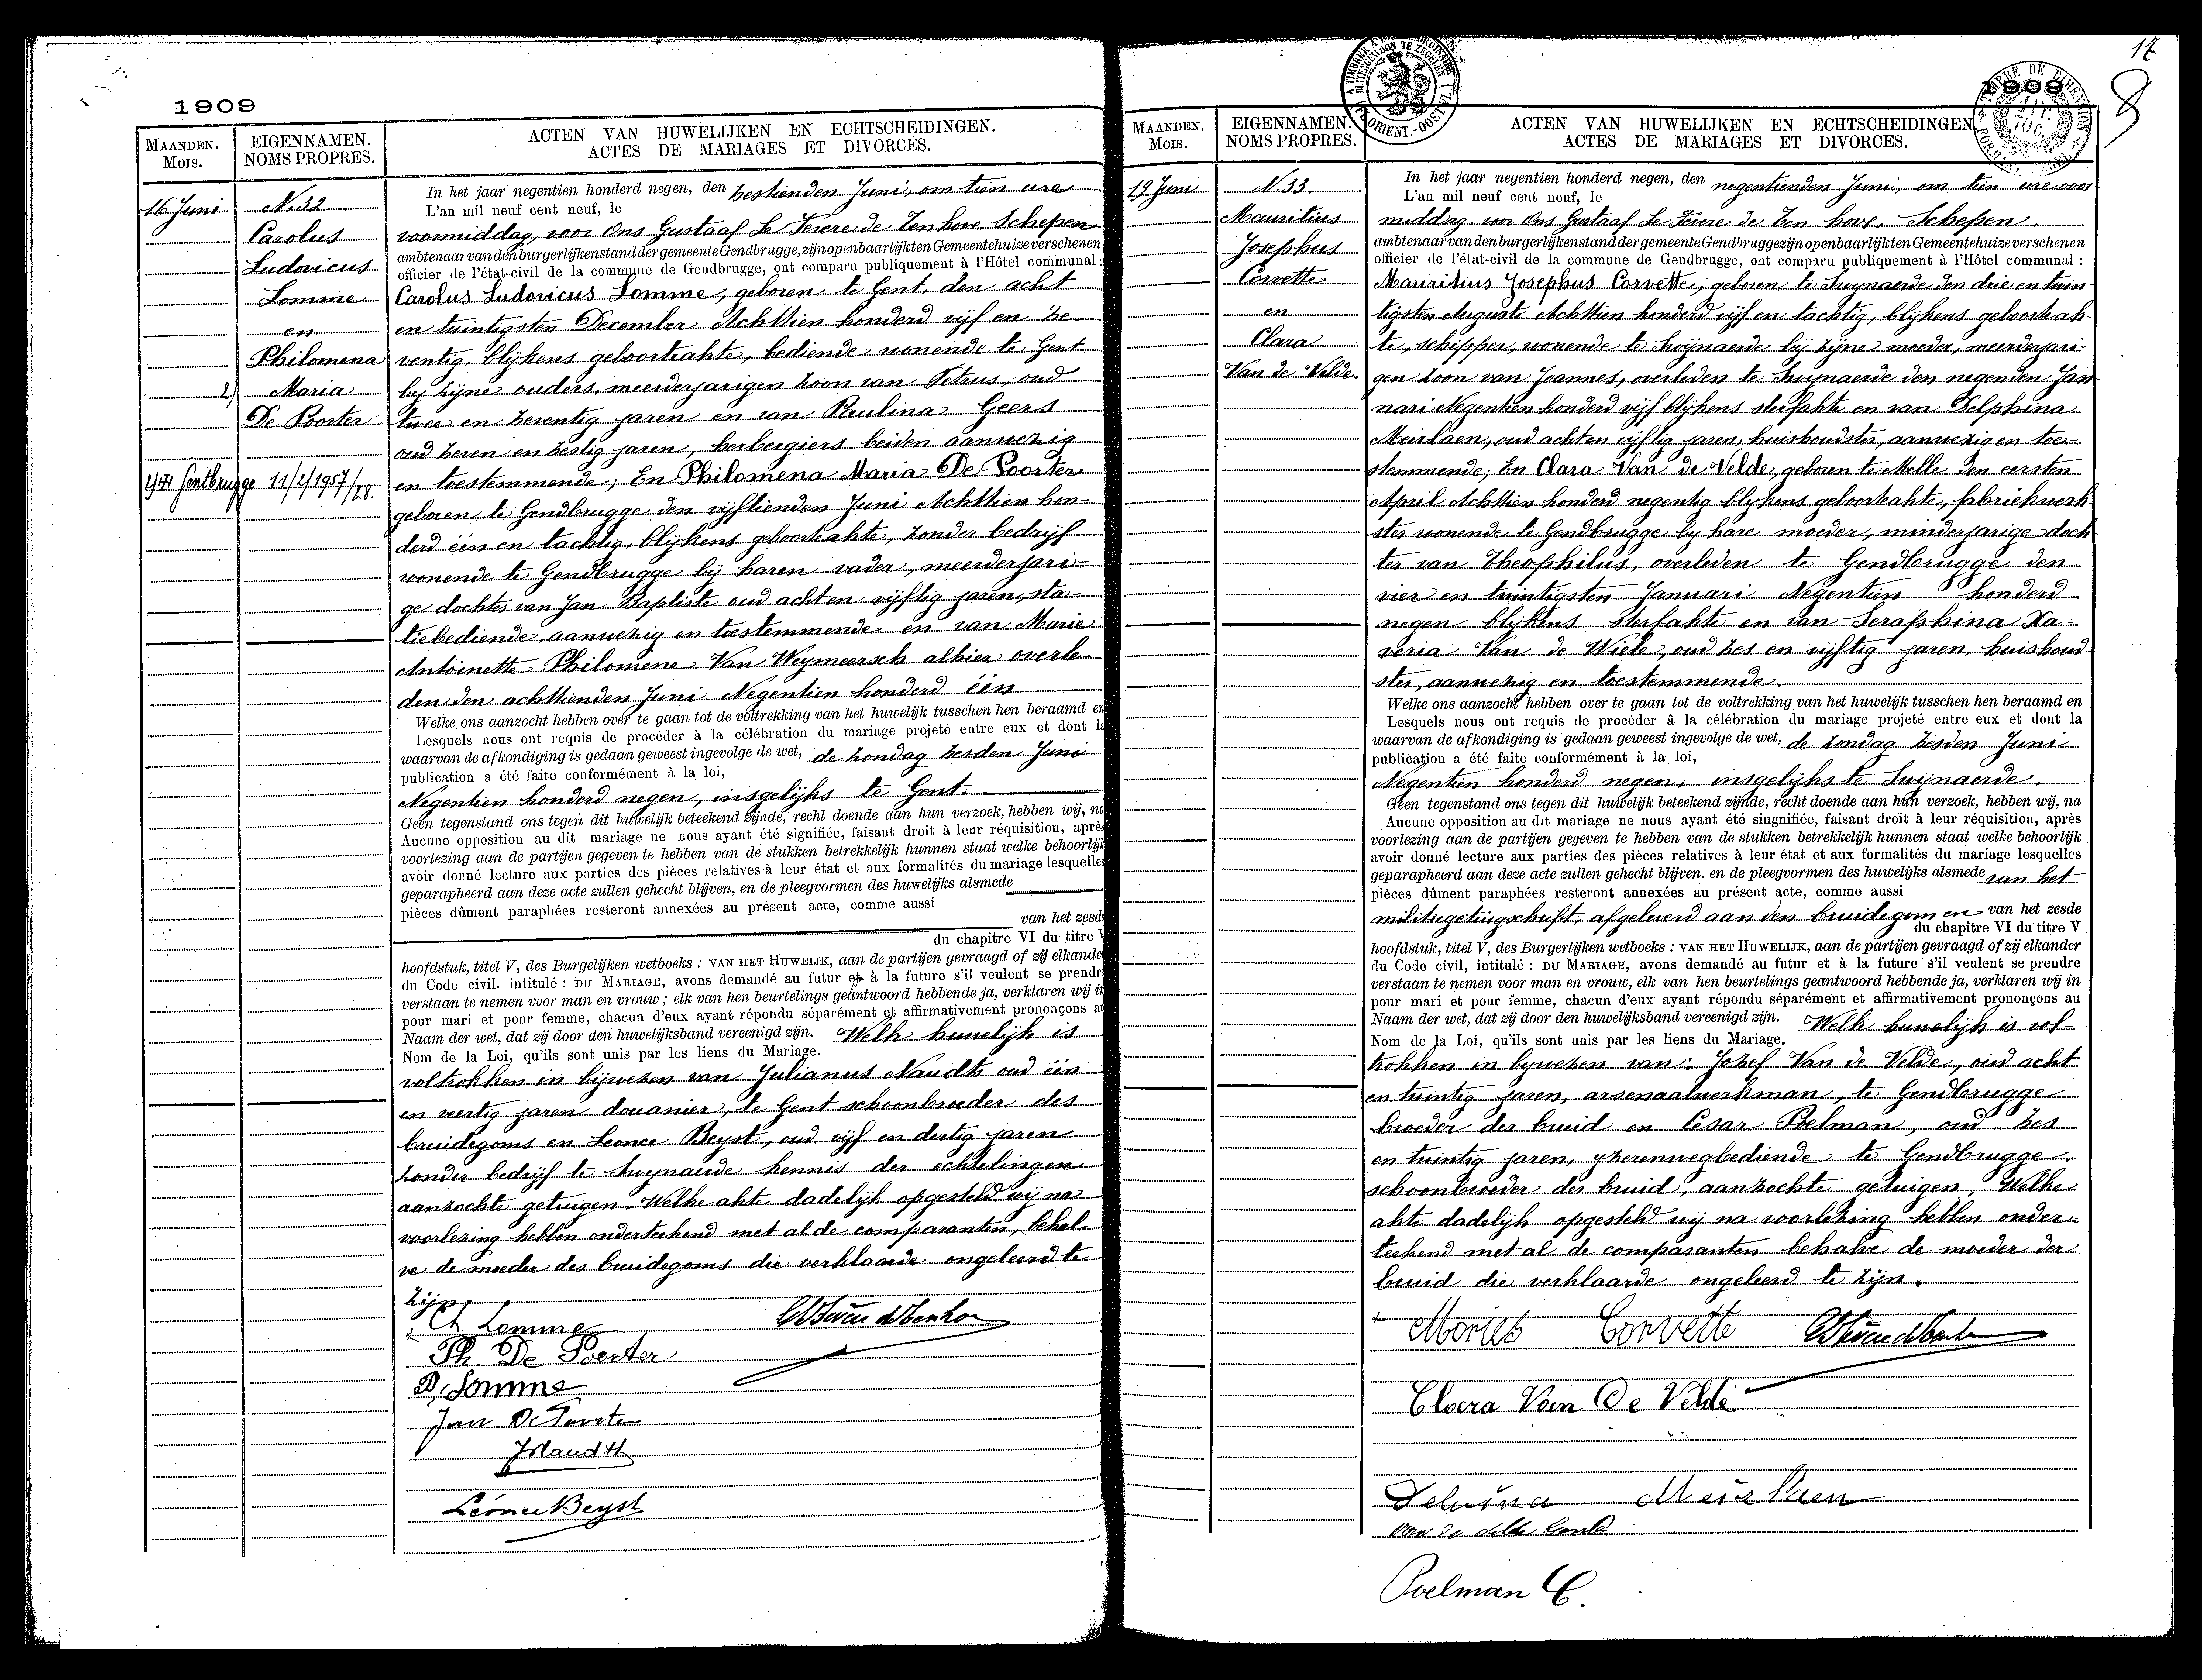 1909
MAANDEN.
MOIS.
EIGENNAMEN.
NOMS PROPRES.
ACTEN VAN HUWELIJKEN EN ECHTSCHEIDINGEN.
ACTES DE MARIAGES ET DIVORCES.
16 Juni
N. 32
Carolus
Ludovicus
Lomme
en
Philomena
2) Maria
De Poorter
Gentbrugge 11/2/1957/28.
In het jaar negentien honderd negen, den zestienden Juni, om tien ure
L'an mil neuf cent neuf, le
voormiddag, voor Ons Gustaaf Le Fevere de Tenhove Schepen
ambtenaar van den burgerlijken stand der gemeente Gendbrugge, zijn openbaarlijk ten Gemeentehuize verschenen
officier de l'état-civil de la commune de Gendbrugge, ont comparu publiquement à l'Hôtel communal :
Carolus Ludovicus Lomme, geboren te Gent, den acht
en twintigsten December Achttien honderd vijf en ze-
ventig, blijkens geboorteakte, bediende wonende te Gent
bij zijne ouders, meerderjarigen zoon van Petrus, oud
twee en zeventig jaren en van Paulina Geers
oud zeven en zestig jaren, herbergiers beiden aanwezig
en toestemmende; En Philomena Maria De Poorter
geboren te Gendbrugge den vijftienden Juni Achttien hon-
derd één en tachtig, blijkens geboorteakte, zonder bedrijf
wonende te Gendbrugge bij haren vader, meerderjari-
ge dochter van Jan Baptiste oud acht en vijftig jaren, sta-
tiebediende, aanwezig en toestemmende en van Marie
Antoinette Philomene Van Weymeersch alhier overle-
den den achttienden Juni Negentien honderd één
Welke ons aanzocht hebben over te gaan tot de voltrekking van het huwelijk tusschen hen beraamd en
Lesquels nous ont requis de procéder à la célébration du mariage projeté entre eux et dont la
waarvan de afkondiging is gedaan geweest ingevolge de wet, de zondag zesden Juni
publication a été faite conformément à la loi,
Negentien honderd negen, insgelijks te Gent.
Geen tegenstand ons tegen dit huwelijk beteekend zijnde, recht doende aan hun verzoek, hebben wij, na
Aucune opposition au dit mariage ne nous ayant été signifiée, faisant droit à leur réquisition, après
voorlezing aan de partijen gegeven te hebben van de stukken betrekkelijk hunnen staat welke behoorlijk
avoir donné lecture aux parties des pièces relatives à leur état et aux formalités du mariage lesquelles
geparapheerd aan deze acte zullen gehecht blijven, en de pleegvormen des huwelijks alsmede
pièces dûment paraphées resteront annexées au présent acte, comme aussi
van het zesde
du chapitre VI du titre V
hoofdstuk, titel V, des Burgelijken wetboeks : VAN HET HUWEIJK, aan de partijen gevraagd of zij elkander
du Code civil. intitulé : DU MARIAGE, avons demandé au futur et à la future s'il veulent se prendre
verstaan te nemen voor man en vrouw ; elk van hen beurtelings geantwoord hebbende ja, verklaren wij in
pour mari et pour femme, chacun d'eux ayant répondu séparément et affirmativement prononçons au
Naam der wet, dat zij door den huwelijksband vereenigd zijn. Welk huwelijk is
Nom de la Loi, qu'ils sont unis par les liens du Mariage.
voltrokken in bijwezen van Julianus Naudts oud één
en veertig jaren douanier, te Gent schoonbroeder des
bruidegoms en Leonce Beyst, oud vijf en dertig jaren
zonder bedrijf te Swynaerde kennis der echtelingen
aanzochte getuigen. Welke akte dadelijk opgesteld wij na
voorlezing hebben onderteekend met al de comparanten, behal-
ve de moeder des bruidegoms die verklaarde ongeleerd te
zijn.
Ch Lomme
Ph De Poorter
P, Lomme
Jan De Poorter
J Naudts
Léonce Beyst
17
1909
8
MAANDEN.
MOIS.
EIGENNAMEN.
NOMS PROPRES.
ACTEN VAN HUWELIJKEN EN ECHTSCHEIDINGEN
ACTES DE MARIAGES ET DIVORCES.
19 Juni
N. 33
Mauritius
Josephus
Corvette
en
Clara
Van de Velde.
In het jaar negentien honderd negen, den negentienden Juni, om tien ure voor
L'an mil neuf cent neuf, le
middag, voor Ons Gustaaf Le Fevere de Ten hove, Schepen.
ambtenaar van den burgerlijken stand der gemeente Gendbrugge zijn openbaarlijk ten Gemeentehuize verschenen
officier de l'état-civil de la commune de Gendbrugge, ont comparu publiquement à l'Hôtel communal :
Mauritius Josephus Corvette, geboren te Swynaerde den drie en twin-
tigsten Augusti Achttien honderd vijf en tachtig, blijkens geboorteak-
te, schipper, wonende te Swijnaerde bij zijne moeder, meerderjari-
gen zoon van Joannes, overleden te Swynaerde den negenden Jan-
nari Negentien honderd vijf blijkens sterfakte en van Delphina
Meirlaen, oud acht en vijftig jaren, huishoudster, aanwezig en toe-
stemmende; En Clara Van de Velde, geboren te Melle den eersten
April Achttien honderd negentig blijkens geboorteakte, fabriekwerk-
ster wonende te Gendbrugge by hare moeder, minderjarige doch-
ter van Theophilus, overleden te Gendbrugge den
vier en twintigsten Januari Negentien honderd
negen blijkens sterfakte en van Seraphina Xa-
veria Van de Wiele, oud zes en vijftig jaren, huishoud-
ster, aanwezig en toestemmende.
Welke ons aanzocht hebben over te gaan tot de voltrekking van het huwelijk tusschen hen beraamd en
Lesquels nous ont requis de procéder â la célébration du mariage projeté entre eux et dont la
waarvan de afkondiging is gedaan geweest ingevolge de wet, de zondag zesden Juni
publication a été faite conformément à la loi,
Negentien honderd negen, insgelijks te Swijnaerde.
Geen tegenstand ons tegen dit huwelijk beteekend zijnde, recht doende aan hun verzoek, hebben wij, na
Aucune opposition au dit mariage ne nous ayant été singnifiée, faisant droit à leur réquisition, après
voorlezing aan de partijen gegeven te hebben van de stukken betrekkelijk hunnen staat welke behoorlijk
avoir donné lecture aux parties des pièces relatives à leur état et aux formalités du mariage lesquelles
geparapheerd aan deze acte zullen gehecht blijven. en de pleegvormen des huwelijks alsmede van het
pièces dûment paraphées resteront annexées au présent acte, comme aussi
militiegetuigschrift, afgeleverd aan den bruidegom en van het zesde
du chapitre VI du titre V
hoofdstuk, titel V, des Burgerlijken wetboeks : VAN HET HUWELIJK, aan de partijen gevraagd of zij elkander
du Code civil, intitulé : DU MARIAGE, avons demandé au futur et à la future s'il veulent se prendre
verstaan te nemen voor man en vrouw, elk van hen beurtelings geantwoord hebbende ja, verklaren wij in
pour mari et pour femme, chacun d'eux ayant répondu séparément et affirmativement prononçons au
Naam der wet, dat zij door den huwelijksband vereenigd zijn. Welk huwelijk is vol-
Nom de la Loi, qu'ils sont unis par les liens du Mariage.
trokken in bywezen van: Jozef Van de Velde, oud acht
en twintig jaren, arsenaalwerkman, te Gendbrugge
broeder der bruid en Cesar Poelman, oud zes
en twintig jaren, yzerenwegbediende te Gendbrugge.
schoonbroeder der bruid, aanzochte getuigen. Welke
akte dadelijk opgesteld wij na voorlezing hebben onder-
teekend met al de comparanten behalve de moeder der
bruid die verklaarde ongeleerd te zijn.
Moriets Corvette
Clara Van De Velde
Delvina Meirlaen
Poelman C.